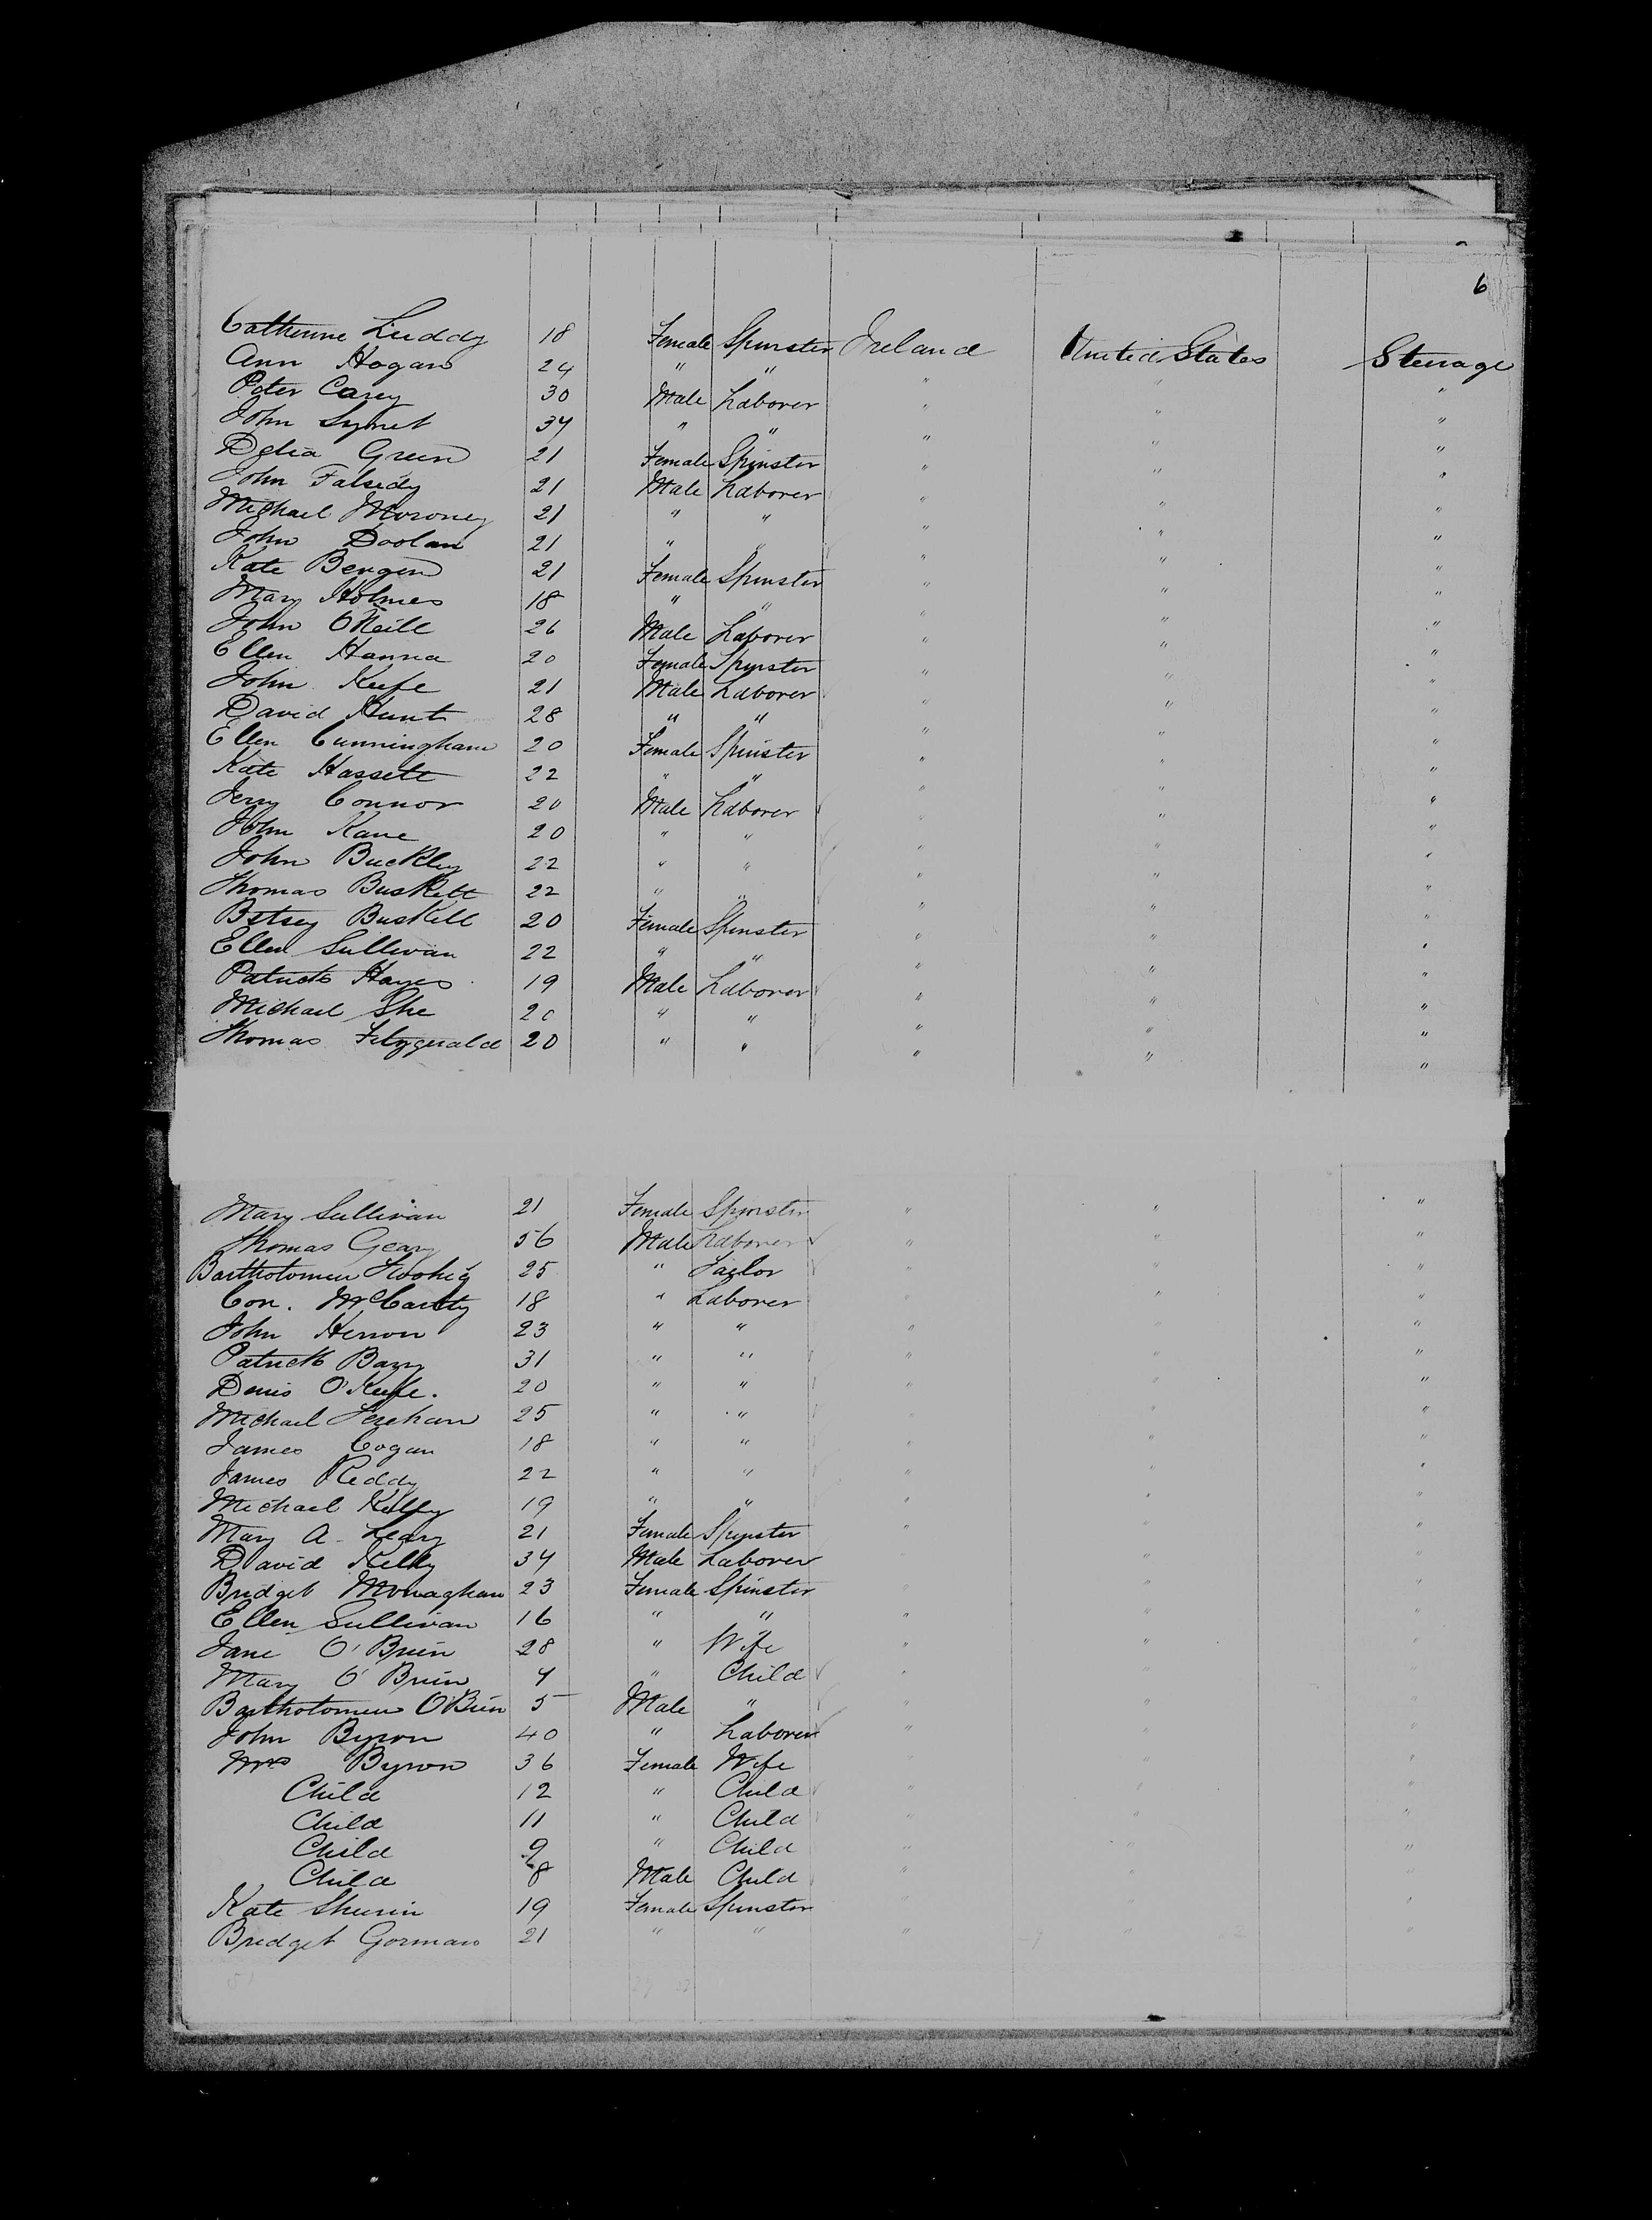 6
Catherine Luddy 18 Female Spinster Ireland United States Steerage
Ann Hogan 24 " " " " "
Peter Carey 30 Male Laborer " " "
John Synet 34 " " " " "
Delia Green 21 Female Spinster " " "
John Falsedy 21 Male Laborer " " "
Michael Moroney 21 " " " " "
John Doolan 21 " " " " "
Kate Bengen 21 Female Spinster " " "
Mary Holmes 18 " " " " "
John O'Neill 26 Male Laborer " " "
Ellen Hanna 20 Female Spinster " " "
John Keefe 21 Male Laborer " " "
David Hunt 28 " " " " "
Ellen Cunningham 20 Female Spinster " " "
Kate Hassett 22 " " " " "
Jerry Connor 20 Male Laborer " " "
John Kane 20 " " " " "
John Buckley 22 " " " " "
Thomas Buskett 22 " " " " "
Betsey Buskell 20 Female Spinster " " "
Ellen Sullivan 22 " " " " "
Patrick Hayes 19 Male Laborer " " "
Michael She 20 " " " " "
Thomas Fitzgerald 20 " " " " "
Mary Sullivan 21 Female Spinster " " "
Thomas Geary 56 Male Laborer " " "
Bartholomew 25 " Taylor " " "
Con. McCarthy 18 " Laborer " " "
John Herron 23 " " " " "
Patrick Barry 31 " " " " "
Denis O'Keefe. 20 " " " " "
Michael 25 " " " " "
James Cogan 18 " " " " "
James Reddy 22 " " " " "
Michael Kelly 19 " " " " "
Mary A. Leary 21 Female Spinster " " "
David Kelly 34 Male Laborer " " "
Bridget Monaghan 23 Female Spinster " " "
Ellen Sullivan 16 " " " " "
Jane O'Brien 28 " Wife " " "
Mary O'Brien 4 " Child " " "
Bartholomew O'Brien 5 Male " " " "
John Byron 40 " Laborer " " "
Mrs Byron 36 Female Wife " " "
Child 12 " Child " " "
Child 11 " Child " " "
Child 9 " Child " " "
Child 8 Male Child " " "
Kate 19 Female Spinster " " "
Bridget Gorman 21 " " " " "